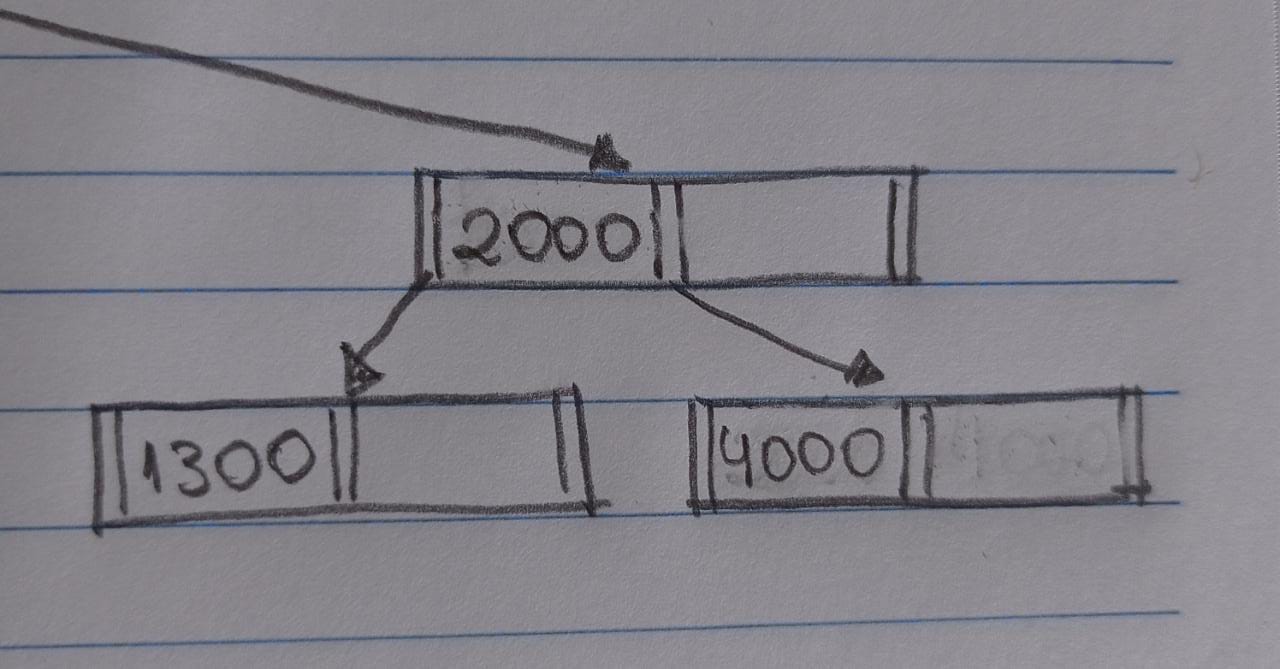 2000
1300 4000